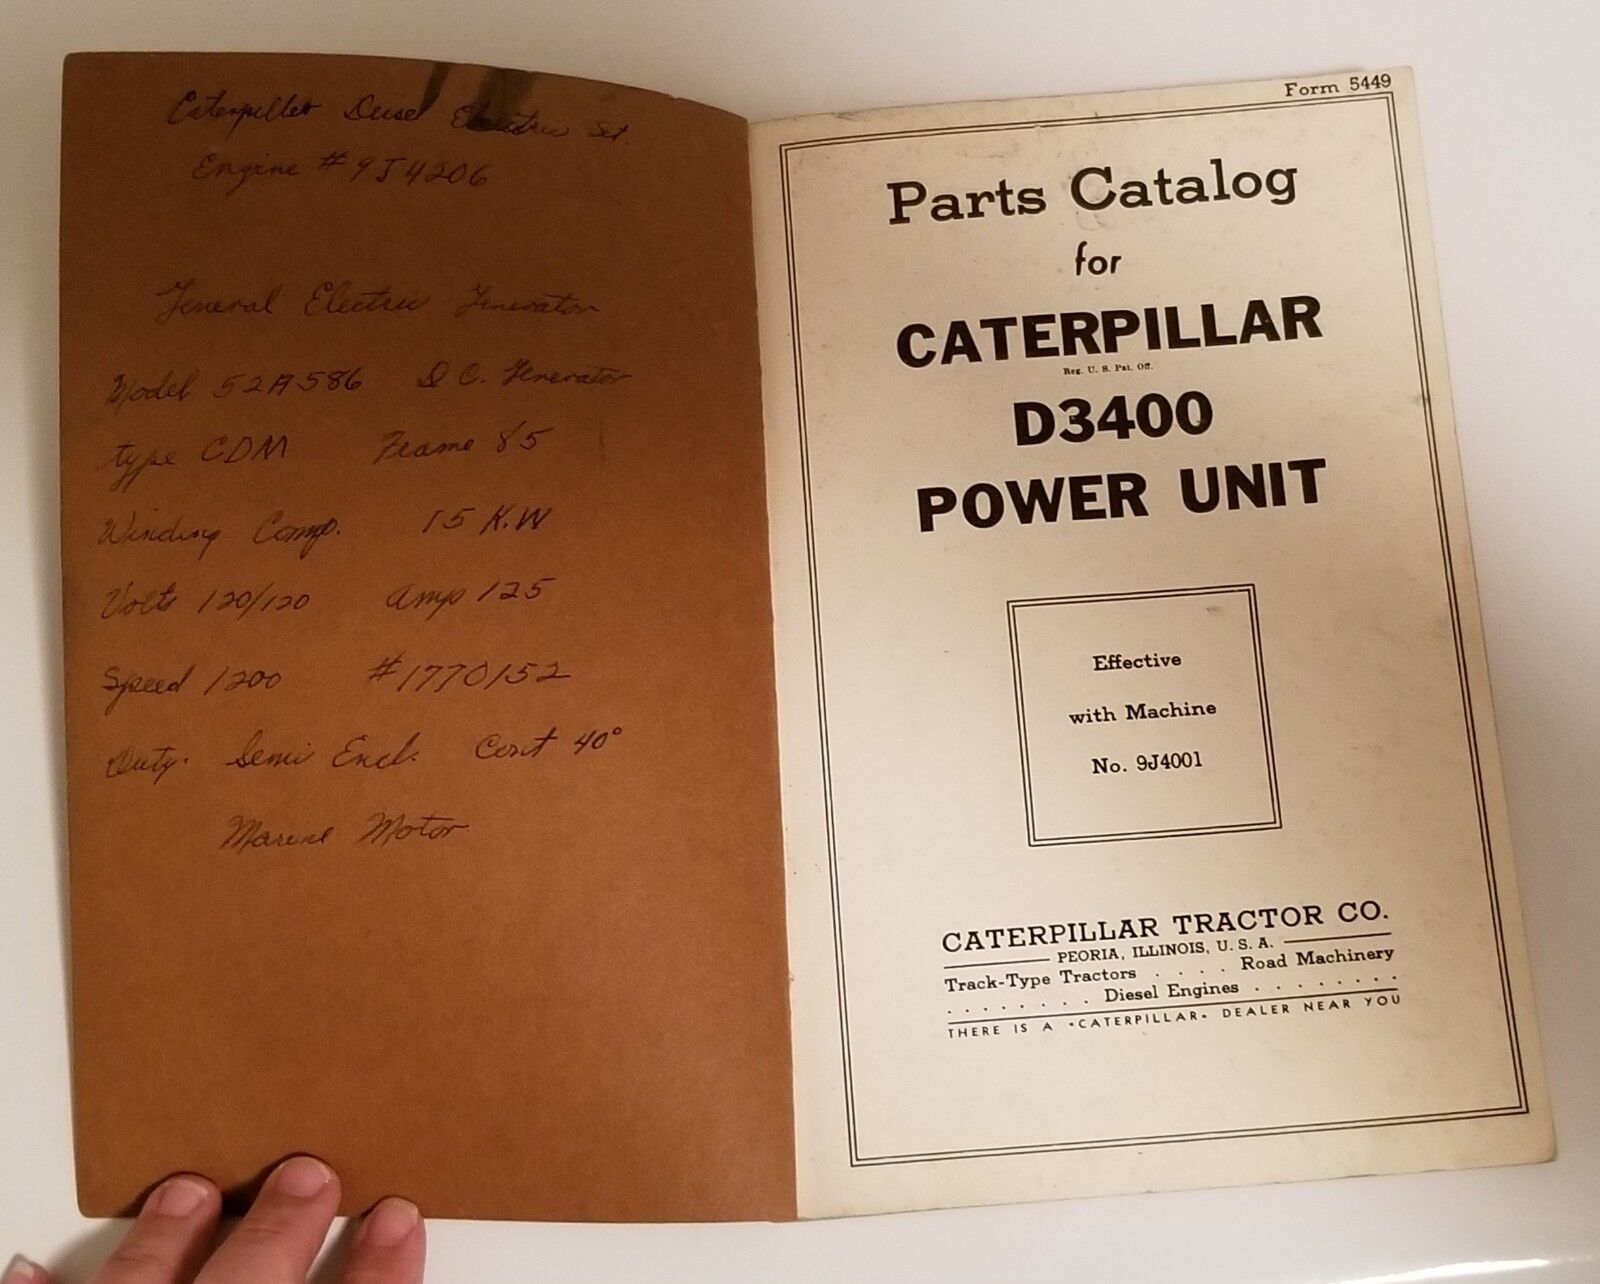 Caterpiller Diesel Electric Set.
Engine # 9J4206
General Electric Generator
Model 52A586 D C. Generator
type CDM Frame 85
Winding Comp. 15 K.W
Volts 120/120 amp 125
Speed 1200 #1770152
Duty. Semi Encl. Cont 40°
Marine Motor
Form 5449
Parts Catalog
for
CATERPILLAR
Reg. U. S. Pat. Off.
D3400
POWER UNIT
Effective
with Machine
No. 9J4001
CATERPILLAR TRACTOR CO.
PEORIA, ILLINOIS, U. S. A.
Track-Type Tractors . . . . Road Machinery
. . . . . . . Diesel Engines . . . . . . . .
THERE IS A "CATERPILLAR" DEALER NEAR YOU